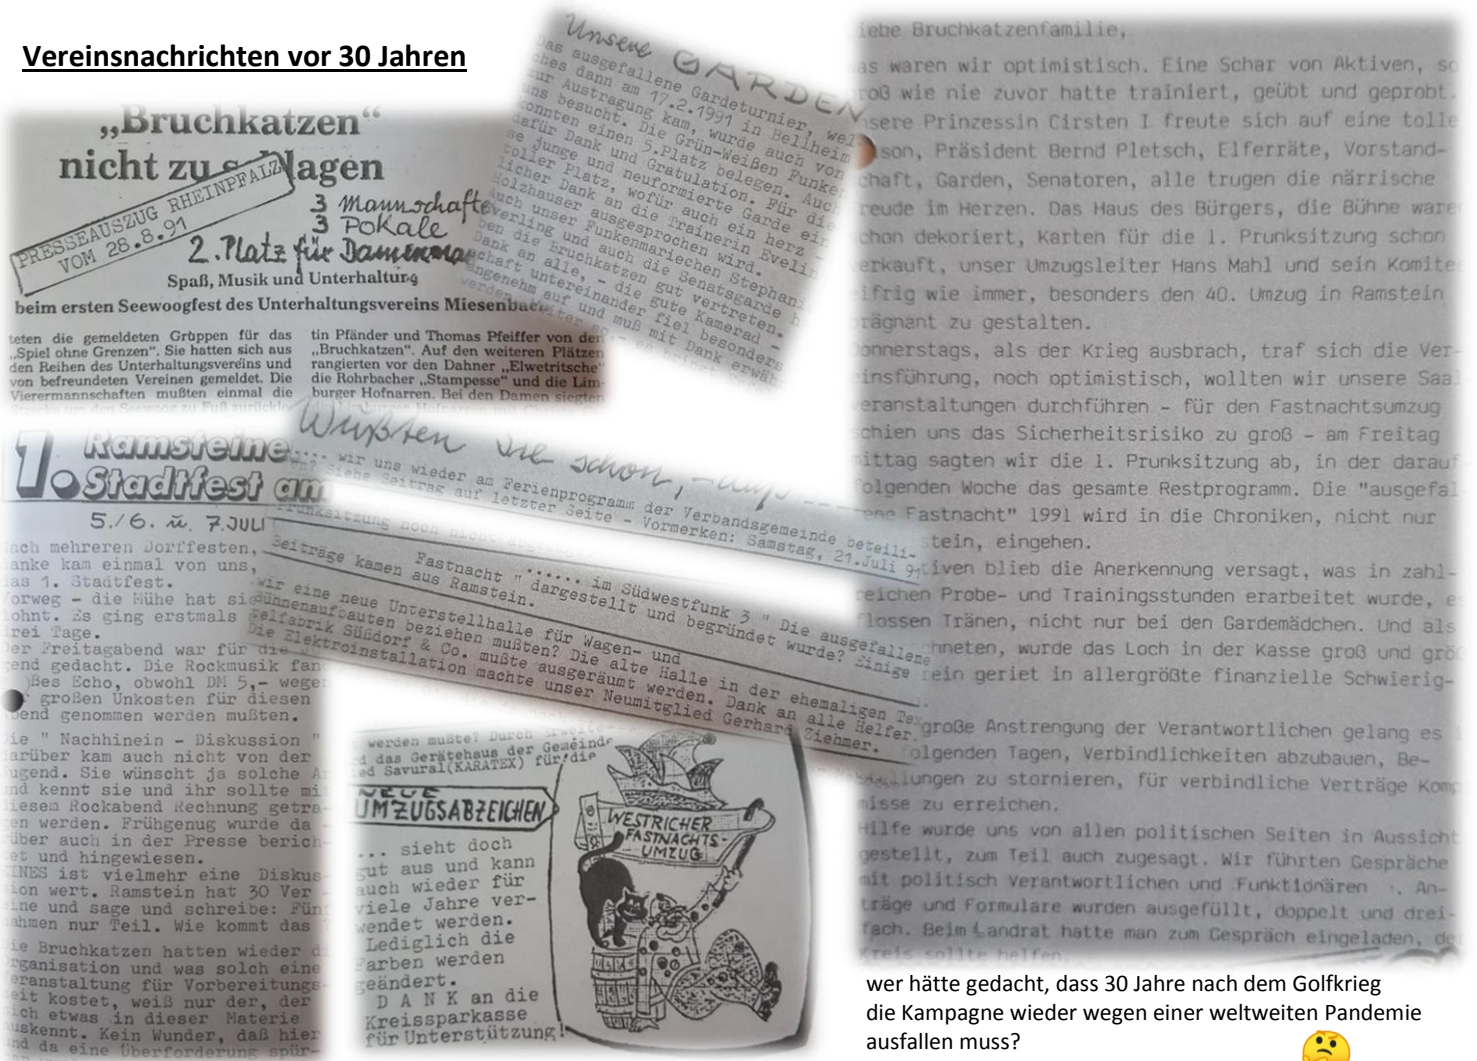 Vereinsnachrichten vor 30 Jahren
„Bruchkatzen"
nicht zu
PRESSEAUSZUG RHEINPFALZ
VOM 28.8.91
3 Mannschafte
3 Pokale
2. Platz für
Spaß, Musik und Unterhaltung
beim ersten Seewoogfest des Unterhaltungsvereins Miesenbach
teten die gemeldeten Gruppen für das
„Spiel ohne Grenzen". Sie hatten sich aus
den Reihen des Unterhaltungsvereins und
von befreundeten Vereinen gemeldet. Die
Vierermannschaften mußten einmal die
tin Pfänder und Thomas Pfeiffer von den
„Bruchkatzen". Auf den weiteren Plätzen
rangierten vor den Dahner „Elwetritsche"
die Rohrbacher „Stampesse" und die Lim-
burger Hofnarren. Bei den Damen siegten
Unsere GARDEN
Das ausgefallene Gardeturnier, wel
ches dann am 17.2.1991 in Bellheim
zur Austragung kam, wurde auch von
uns besucht. Die Grün-Weißen Funken
konnten einen 5.Platz belegen. Auch
dafür Dank und Gratulation. Für die
se junge und neuformierte Garde ein
toller Platz, wofür auch ein herz -
licher Dank an die Trainerin Evelin
Holzhauser ausgesprochen wird.
Auch unser Funkenmariechen Stephani
verling und auch die Senatsgarde h
ben die Bruchkatzen gut vertreten.
Dank an alle, - die gute Kamerad -
schaft untereinander fiel besonders
angenehm auf und muß mit Dank erwäh
werden
1. Ramsteine
Stadtfest am
5./6. u. 7. JULI
ach mehreren Dorffesten,
anke kam einmal von uns,
as 1. Stadtfest.
orweg - die Mühe hat sic
ohnt. Es ging erstmals
rei Tage.
er Freitagabend war für die
gend gedacht. Die Rockmusik fan
ßes Echo, obwohl DM 5,- wege
großen Unkosten für diesen
bend genommen werden mußten.
ie " Nachhinein - Diskussion "
arüber kam auch nicht von der
ugend. Sie wünscht ja solche A
nd kennt sie und ihr sollte mi
iesem Rockabend Rechnung getra
en werden. Frühgenug wurde da -
über auch in der Presse berich-
et und hingewiesen.
EINES ist vielmehr eine Diskus
ion wert. Ramstein hat 30 Ver -
ine und sage und schreibe: Fün
ahmen nur Teil. Wie kommt das
ie Bruchkatzen hatten wieder d
rganisation und was solch eine
eranstaltung für Vorbereitungs-
eit kostet, weiß nur der, der
ich etwas in dieser Materie
uskennt. Kein Wunder, daß hier
nd da eine Überforderung spür-
Wußten Sie schon, - daß ---
.... wir uns wieder am Ferienprogramm der Verbandsgemeinde beteili-
en? Siehe Beitrag auf letzter Seite - Vormerken: Samstag, 21.Juli 91
...... im Südwestfunk 3 " Die ausgefallene
Fastnacht " dargestellt und begründet wurde? Einige
Beiträge kamen aus Ramstein.
wir eine neue Unterstellhalle für Wagen- und
Bühnenaufbauten beziehen mußten? Die alte Halle in der ehemaligen Tex
elfabrik Süßdorf & Co. mußte ausgeräumt werden. Dank an alle Helfer.
Die Elektroinstallation machte unser Neumitglied Gerhard Ziehmer.
werden mußte? Durch
d das Gerätehaus der Gemeinde
ied Savural(KARATEX) für die
NEUE
UMZUGSABZEICHEN
... sieht doch
gut aus und kann
auch wieder für
viele Jahre ver-
wendet werden.
Lediglich die
Farben werden
geändert.
D A N K an die
Kreissparkasse
für Unterstützung!
WESTRICHER
FASTNACHTS-
UMZUG
iebe Bruchkatzenfamilie,
as waren wir optimistisch. Eine Schar von Aktiven, so
roß wie nie zuvor hatte trainiert, geübt und geprobt.
nsere Prinzessin Cirsten I freute sich auf eine tolle
son, Präsident Bernd Pletsch, Elferräte, Vorstand-
chaft, Garden, Senatoren, alle trugen die närrische
reude im Herzen. Das Haus des Bürgers, die Bühne ware
chon dekoriert, Karten für die 1. Prunksitzung schon
erkauft, unser Umzugsleiter Hans Mahl und sein Komitee
ifrig wie immer, besonders den 40. Umzug in Ramstein
rägnant zu gestalten.
onnerstags, als der Krieg ausbrach, traf sich die Ver-
einsführung, noch optimistisch, wollten wir unsere Saal
eranstaltungen durchführen - für den Fastnachtsumzug
chien uns das Sicherheitsrisiko zu groß - am Freitag
ittag sagten wir die 1. Prunksitzung ab, in der darauf
olgenden Woche das gesamte Restprogramm. Die "ausgefal
ene Fastnacht" 1991 wird in die Chroniken, nicht nur
stein, eingehen.
tiven blieb die Anerkennung versagt, was in zahl-
reichen Probe- und Trainingsstunden erarbeitet wurde, e
lossen Tränen, nicht nur bei den Gardemädchen. Und als
hneten, wurde das Loch in der Kasse groß und grö
rein geriet in allergrößte finanzielle Schwierig-
große Anstrengung der Verantwortlichen gelang es i
olgenden Tagen, Verbindlichkeiten abzubauen, Be-
llungen zu stornieren, für verbindliche Verträge Komp
misse zu erreichen.
Hilfe wurde uns von allen politischen Seiten in Aussicht
gestellt, zum Teil auch zugesagt. Wir führten Gespräche
mit politisch Verantwortlichen und Funktionären . An-
träge und Formulare wurden ausgefüllt, doppelt und drei-
fach. Beim Landrat hatte man zum Gespräch eingeladen, de
Kreis sollte helfen
wer hätte gedacht, dass 30 Jahre nach dem Golfkrieg
die Kampagne wieder wegen einer weltweiten Pandemie
ausfallen muss?